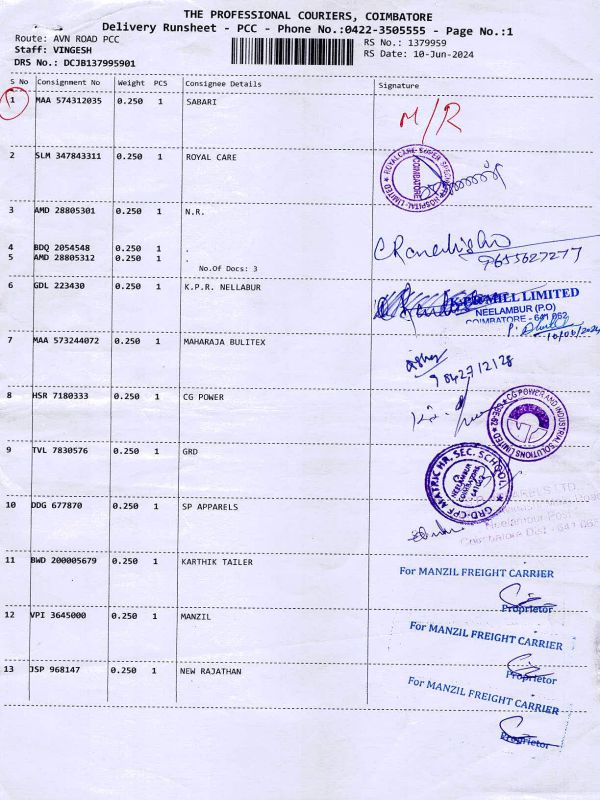 THE PROFESSIONAL COURIERS, COIMBATORE
Delivery Runsheet - PCC - Phone No.:0422-3505555 - Page No.:1
Route: AVN ROAD PCC
RS No.: 1379959
Staff: VINGESH
RS Date: 10-Jun-2024
DRS No.: DCJB137995901
S No Consignment No Weight PCS Consignee Details Signature
1 MAA 574312035 0.250 1 SABARI M/R
2 SLM 347843311 0.250 1 ROYAL CARE
COIMBATORE
3 AMD 28805301 0.250 1 N.R.
4 BDQ 2054548 0.250 1 .
5 AMD 28805312 0.250 1 .
9655627277
No.Of Docs: 3
6 GDL 223430 0.250 1 K.P.R. NELLABUR
K.P.R. MILL LIMITED
NEELAMBUR (P.O)
COIMBATORE - 641 062
10/06/2024
7 MAA 573244072 0.250 1 MAHARAJA BULITEX
9842712128
8 HSR 7180333 0.250 1 CG POWER
CG POWER AND INDUSTRIAL SOLUTIONS LIMITED
9 TVL 7830576 0.250 1 GRD
GRD-CPF MATRIC HR. SEC. SCHOOL
NEELAMBUR
COIMBATORE
641 062
10 DDG 677870 0.250 1 SP APPARELS
11 BWD 200005679 0.250 1 KARTHIK TAILER
For MANZIL FREIGHT CARRIER
Proprietor
12 VPI 3645000 0.250 1 MANZIL
For MANZIL FREIGHT CARRIER
Proprietor
13 JSP 968147 0.250 1 NEW RAJATHAN
For MANZIL FREIGHT CARRIER
Proprietor